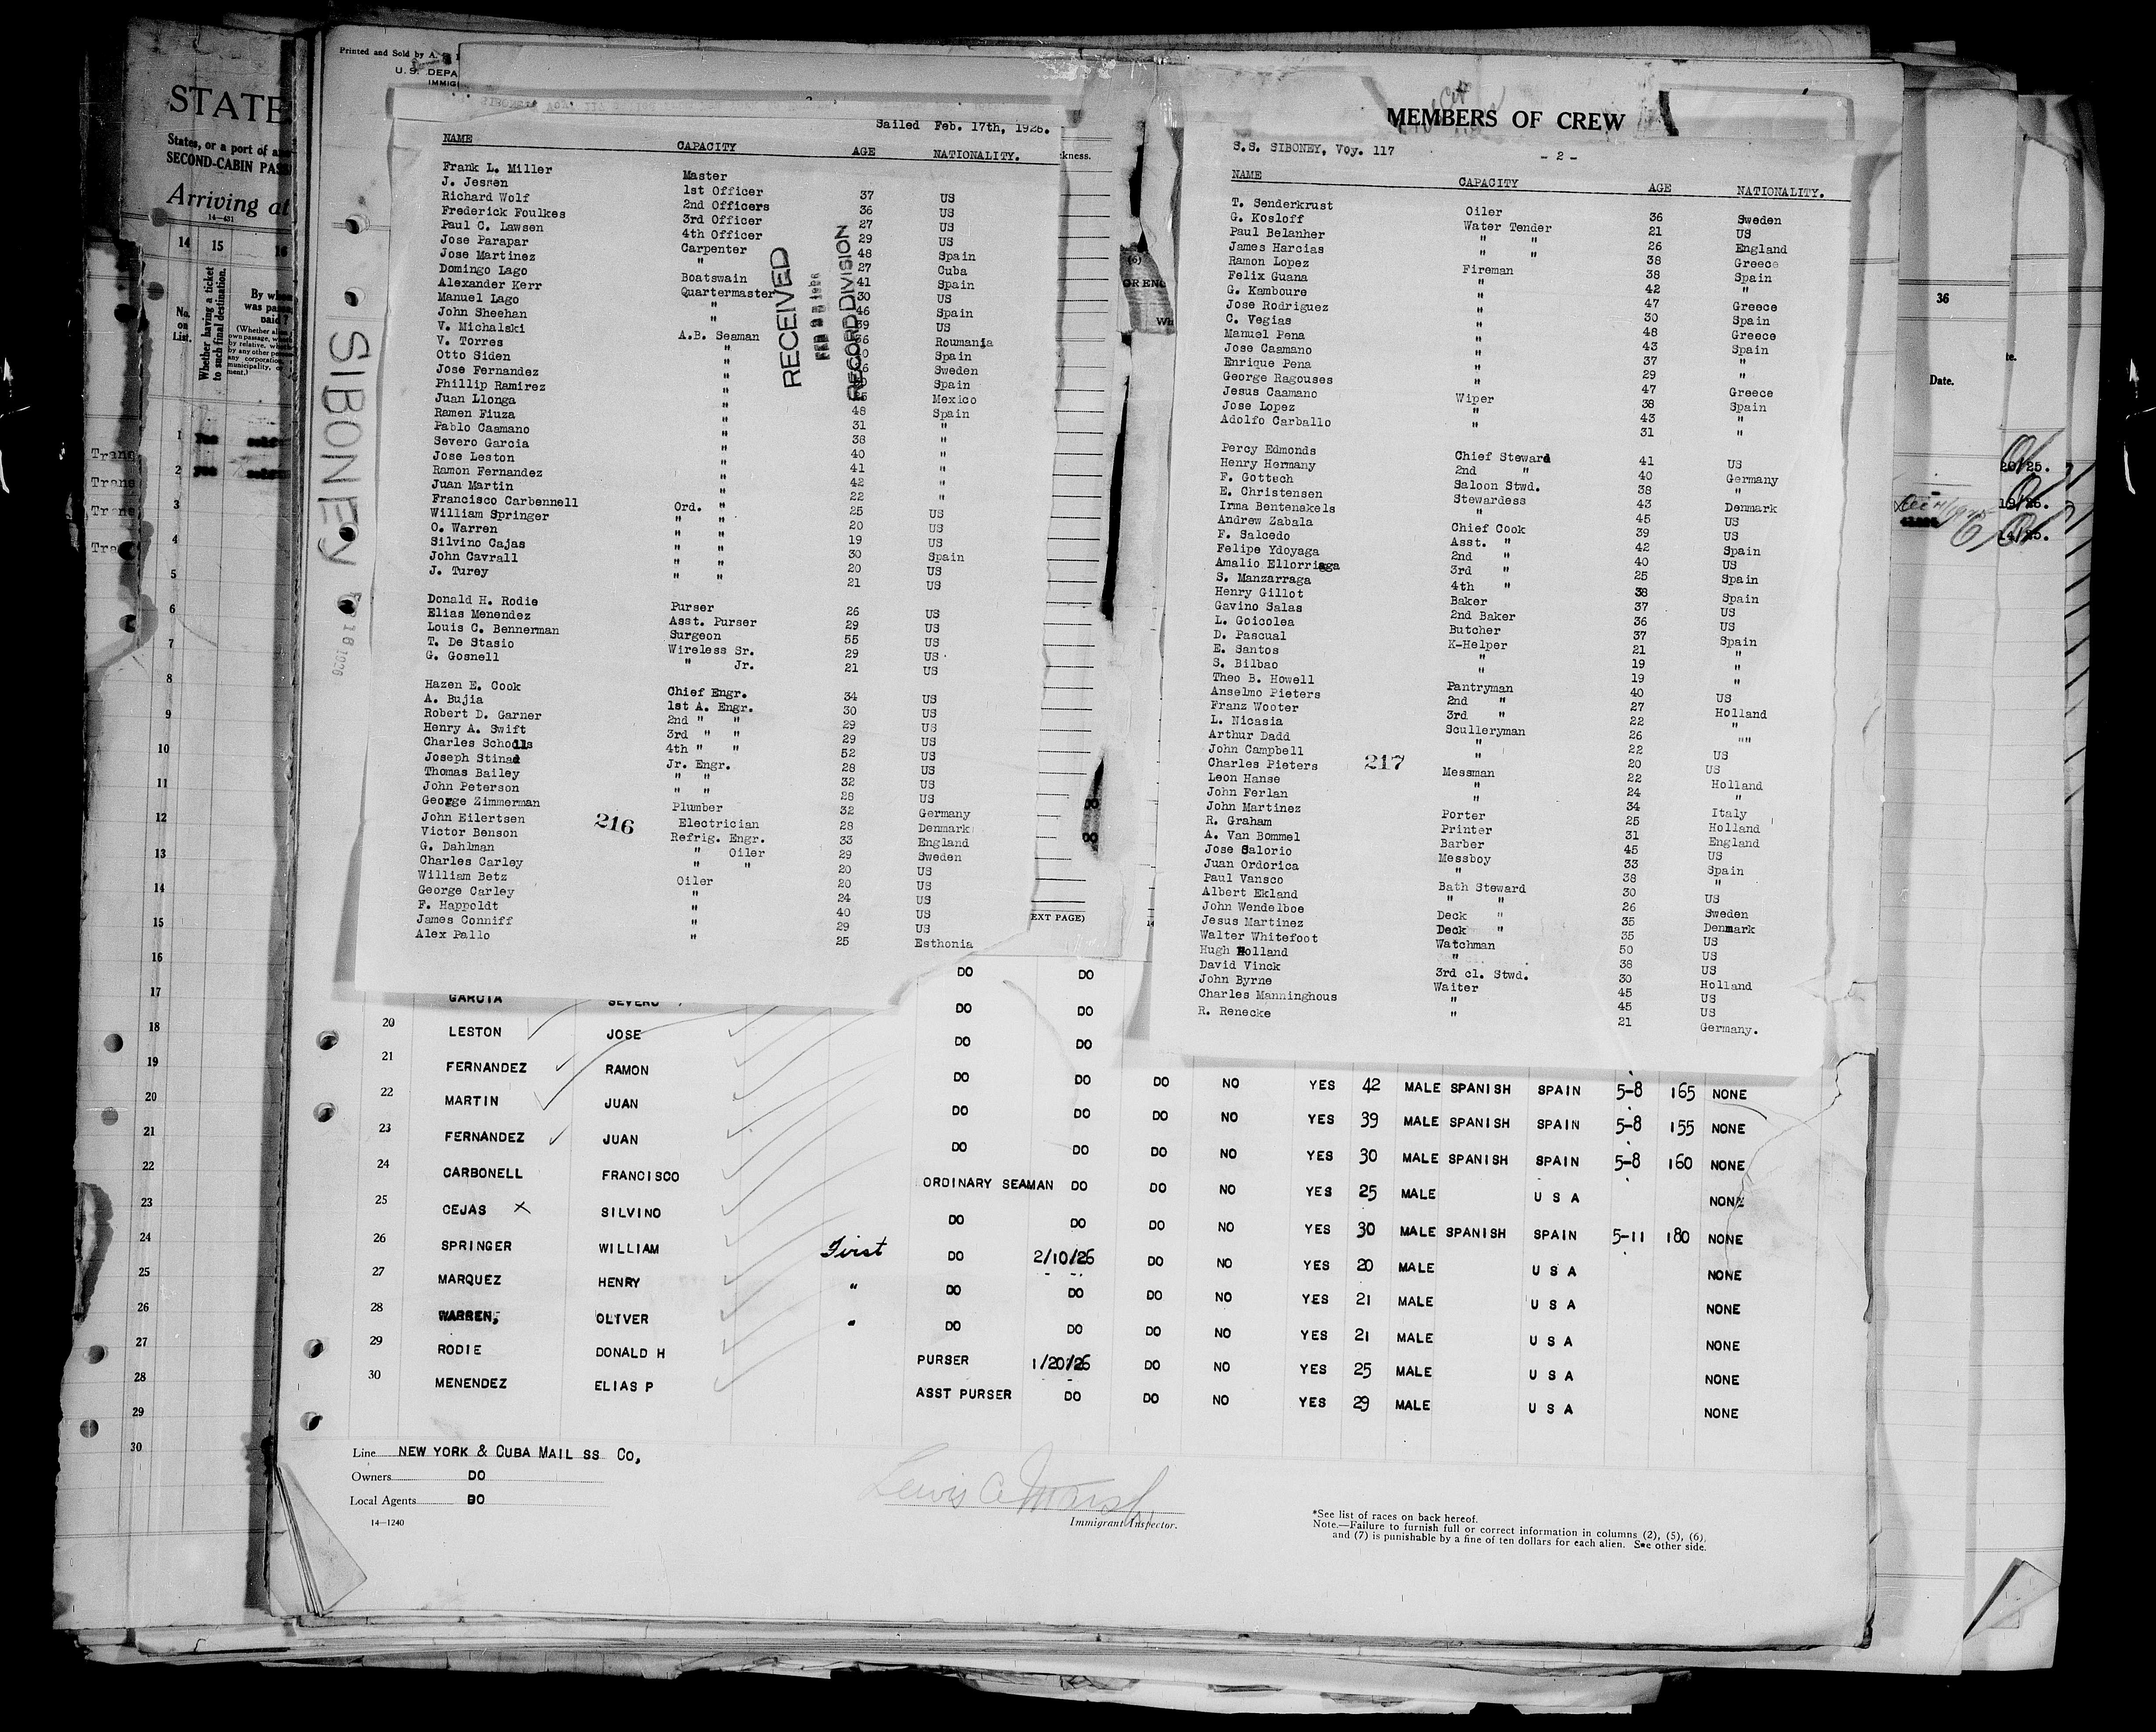 STATE
States, or a port of a
SECOND-CABIN PAS
Arriving at
14—431
14 15 16
No. on List.
Whether having a ticket to such final destination.
By whom was passage paid?
Printed and Sold by A.
U.S. DEPA
IMMIG
SIBONEY
Sailed Feb. 17th, 1926.
NAME CAPACITY AGE NATIONALITY.
Frank L. Miller Master
J. Jessen 1st Officer 37 US
Richard Wolf 2nd Officers 36 US
Frederick Foulkes 3rd Officer 27 US
Paul C. Lawsen 4th Officer 29 US
Jose Parapar Carpenter 48 Spain
Jose Martinez " 27 Cuba
Domingo Lago Boatswain 41 Spain
Alexander Kerr Quartermaster 30 US
Manuel Lago " 46 Spain
John Sheehan " 39 US
V. Michalski A.B. Seaman 36 Roumania
V. Torres " Spain
Otto Siden " Sweden
Jose Fernandez " Spain
Phillip Ramirez " Mexico
Juan Llonga " 48 Spain
Ramen Fiuza " 31 "
Pablo Caamano " 38 "
Severo Garcia " 40 "
Jose Leston " 41 "
Ramon Fernandez " 42 "
Juan Martin " 22 "
Francisco Carbennell Ord. " 25 US
William Springer " " 20 US
O. Warren " " 19 US
Silvino Cajas " " 30 Spain
John Cavrall " " 20 US
J. Turey " " 21 US
Donald H. Rodie Purser 26 US
Elias Menendez Asst. Purser 29 US
Louis C. Bennerman Surgeon 55 US
T. De Stasio Wireless Sr. 29 US
G. Gosnell " Jr. 21 US
Hazen E. Cook Chief Engr. 34 US
A. Bujia 1st A. Engr. 30 US
Robert D. Garner 2nd " " 29 US
Henry A. Swift 3rd " " 29 US
Charles Schools 4th " " 52 US
Joseph Stinad Jr. Engr. 28 US
Thomas Bailey " " 32 US
John Peterson " " 28 US
George Zimmerman Plumber 32 Germany
John Eilertsen Electrician 28 Denmark
Victor Benson Refrig. Engr. 33 England
G. Dahlman " Oiler 29 Sweden
Charles Carley " " 20 US
William Betz Oiler 20 US
George Carley " 24 US
F. Happoldt " 40 US
James Conniff " 29 US
Alex Pallo " 25 Esthonia
216
RECEIVED
FEB 1926
RECORD DIVISION
kness.
EXT PAGE)
MEMBERS OF CREW
S.S. SIBONEY, Voy. 117
- 2 -
NAME CAPACITY AGE NATIONALITY.
T. Senderkrust Oiler 36 Sweden
G. Kosloff Water Tender 21 US
Paul Belanher " " 26 England
James Harcias " " 38 Greece
Ramon Lopez Fireman 38 Spain
Felix Guana " 42 "
G. Kamboure " 47 Greece
Jose Rodriguez " 30 Spain
C. Vegias " 48 Greece
Manuel Pena " 43 Spain
Jose Caamano " 37 "
Enrique Pena " 29 "
George Ragouses " 47 Greece
Jesus Caamano Wiper 38 Spain
Jose Lopez " 43 "
Adolfo Carballo " 31 "
Percy Edmonds Chief Steward 41 US
Henry Hermany 2nd " 40 Germany
F. Gottsch Saloon Stwd. 38 "
E. Christensen Stewardess 43 Denmark
Irma Bentenakels " 45 US
Andrew Zabala Chief Cook 39 US
F. Salcedo Asst. " 42 Spain
Felipe Ydoyaga 2nd " 40 US
Amalio Ellorriaga 3rd " 25 Spain
S. Manzarraga 4th " 38 Spain
Henry Gillot Baker 37 US
Gavino Salas 2nd Baker 36 US
L. Goicolea Butcher 37 Spain
D. Pascual K-Helper 21 "
E. Santos " 19 "
S. Bilbao " 19 "
Theo B. Howell Pantryman 40 US
Anselmo Pieters 2nd " 27 Holland
Franz Wooter 3rd " 22 "
L. Nicasia Sculleryman 26 ""
Arthur Dadd " 22 US
John Campbell " 20 US
Charles Pieters Messman 22 Holland
Leon Hanse " 24 "
John Ferlan " 34 Italy
John Martinez Porter 25 Holland
R. Graham Printer 31 England
A. Van Bommel Barber 45 US
Jose Salorio Messboy 33 Spain
Juan Ordorica " 38 "
Paul Vansco Bath Steward 30 US
Albert Ekland " " 26 Sweden
John Wendelboe Deck " 35 Denmark
Jesus Martinez Deck " 35 US
Walter Whitefoot Watchman 50 US
Hugh Holland " 38 US
David Vinck 3rd cl. Stwd. 30 Holland
John Byrne Waiter 45 US
Charles Manninghous " 45 US
R. Renecke " 21 Germany.
217
36
Date.
20/25.
19/26.
14/25.
DO DO
GARCIA SEVERO DO DO
20 LESTON JOSE DO DO
21 FERNANDEZ RAMON DO DO DO NO YES 42 MALE SPANISH SPAIN 5-8 165 NONE
22 MARTIN JUAN DO DO DO NO YES 39 MALE SPANISH SPAIN 5-8 155 NONE
23 FERNANDEZ JUAN DO DO DO NO YES 30 MALE SPANISH SPAIN 5-8 160 NONE
24 CARBONELL FRANCISCO ORDINARY SEAMAN DO DO NO YES 25 MALE U S A NONE
25 CEJAS X SILVINO DO DO DO NO YES 30 MALE SPANISH SPAIN 5-11 180 NONE
26 SPRINGER WILLIAM First DO 2/10/26 DO NO YES 20 MALE U S A NONE
27 MARQUEZ HENRY " DO DO DO NO YES 21 MALE U S A NONE
28 WARREN, OLIVER " DO DO DO NO YES 21 MALE U S A NONE
29 RODIE DONALD H PURSER 1/20/26 DO NO YES 25 MALE U S A NONE
30 MENENDEZ ELIAS P ASST PURSER DO DO NO YES 29 MALE U S A NONE
Line NEW YORK & CUBA MAIL SS Co,
Owners DO
Local Agents DO
14—1240
Lewis C Marsh
Immigrant Inspector.
*See list of races on back hereof.
Note.—Failure to furnish full or correct information in columns (2), (5), (6),
and (7) is punishable by a fine of ten dollars for each alien. See other side.